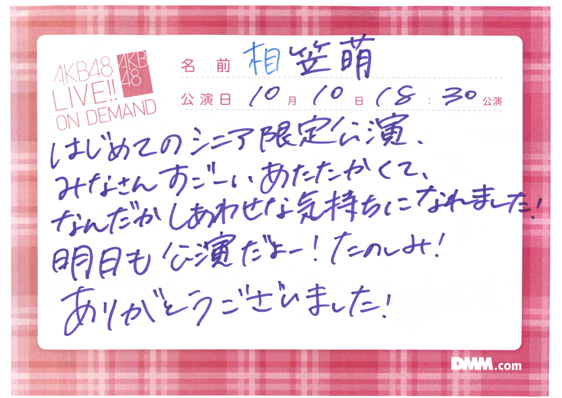 AKB48
LIVE!!
ON DEMAND
AKB
48
名前 相笠萌
公演日 10月10日 18:30公演
はじめてのシニア限定公演、
みなさんすごーいあたたかくて、
なんだかしあわせな気持ちになれました!
明日も公演だよー!たのしみ!
ありがとうございました!
DMM.com